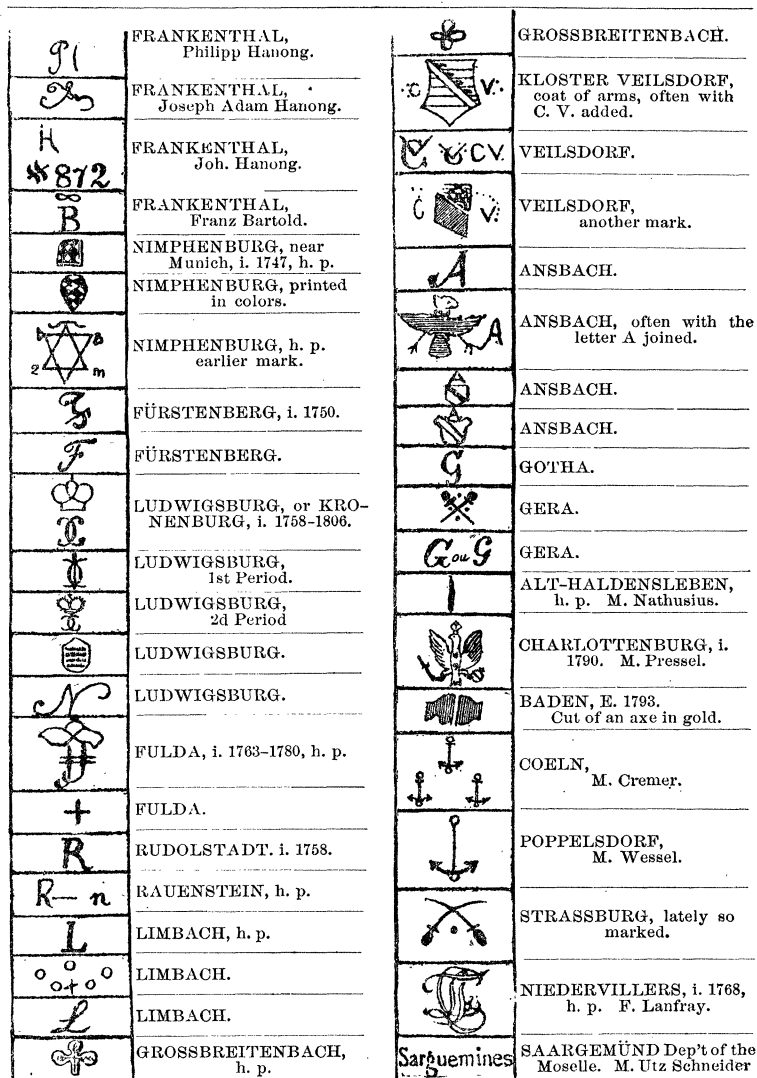 Pl
FRANKENTHAL,
Philipp Hanong.
FRANKENTHAL,
Joseph Adam Hanong.
H
#872
FRANKENTHAL,
Joh. Hanong.
B
FRANKENTHAL,
Franz Bartold.
NIMPHENBURG, near
Munich, i. 1747, h. p.
NIMPHENBURG, printed
in colors.
2 B m
NIMPHENBURG, h. p.
earlier mark.
FÜRSTENBERG, i. 1750.
F
FÜRSTENBERG.
LUDWIGSBURG, or KRO-
NENBURG, i. 1758-1806.
LUDWIGSBURG,
1st Period.
LUDWIGSBURG,
2d Period
LUDWIGSBURG.
N
LUDWIGSBURG.
FULDA, i. 1763-1780, h. p.
FULDA.
R
RUDOLSTADT. i. 1758.
R—n
RAUENSTEIN, h. p.
L
LIMBACH, h. p.
LIMBACH.
L
LIMBACH.
GROSSBREITENBACH,
h. p.
GROSSBREITENBACH.
C V.
KLOSTER VEILSDORF,
coat of arms, often with
C. V. added.
CV.
VEILSDORF.
C V.
VEILSDORF,
another mark.
A
ANSBACH.
A
ANSBACH, often with the
letter A joined.
ANSBACH.
ANSBACH.
G
GOTHA.
GERA.
G ou G
GERA.
ALT-HALDENSLEBEN,
h. p. M. Nathusius.
CHARLOTTENBURG, i.
1790. M. Pressel.
BADEN, E. 1793.
Cut of an axe in gold.
COELN,
M. Cremer.
POPPELSDORF,
M. Wessel.
STRASSBURG, lately so
marked.
NIEDERVILLERS, i. 1768,
h. p. F. Lanfray.
Sarguemines
SAARGEMÜND Dep't of the
Moselle. M. Utz Schneider